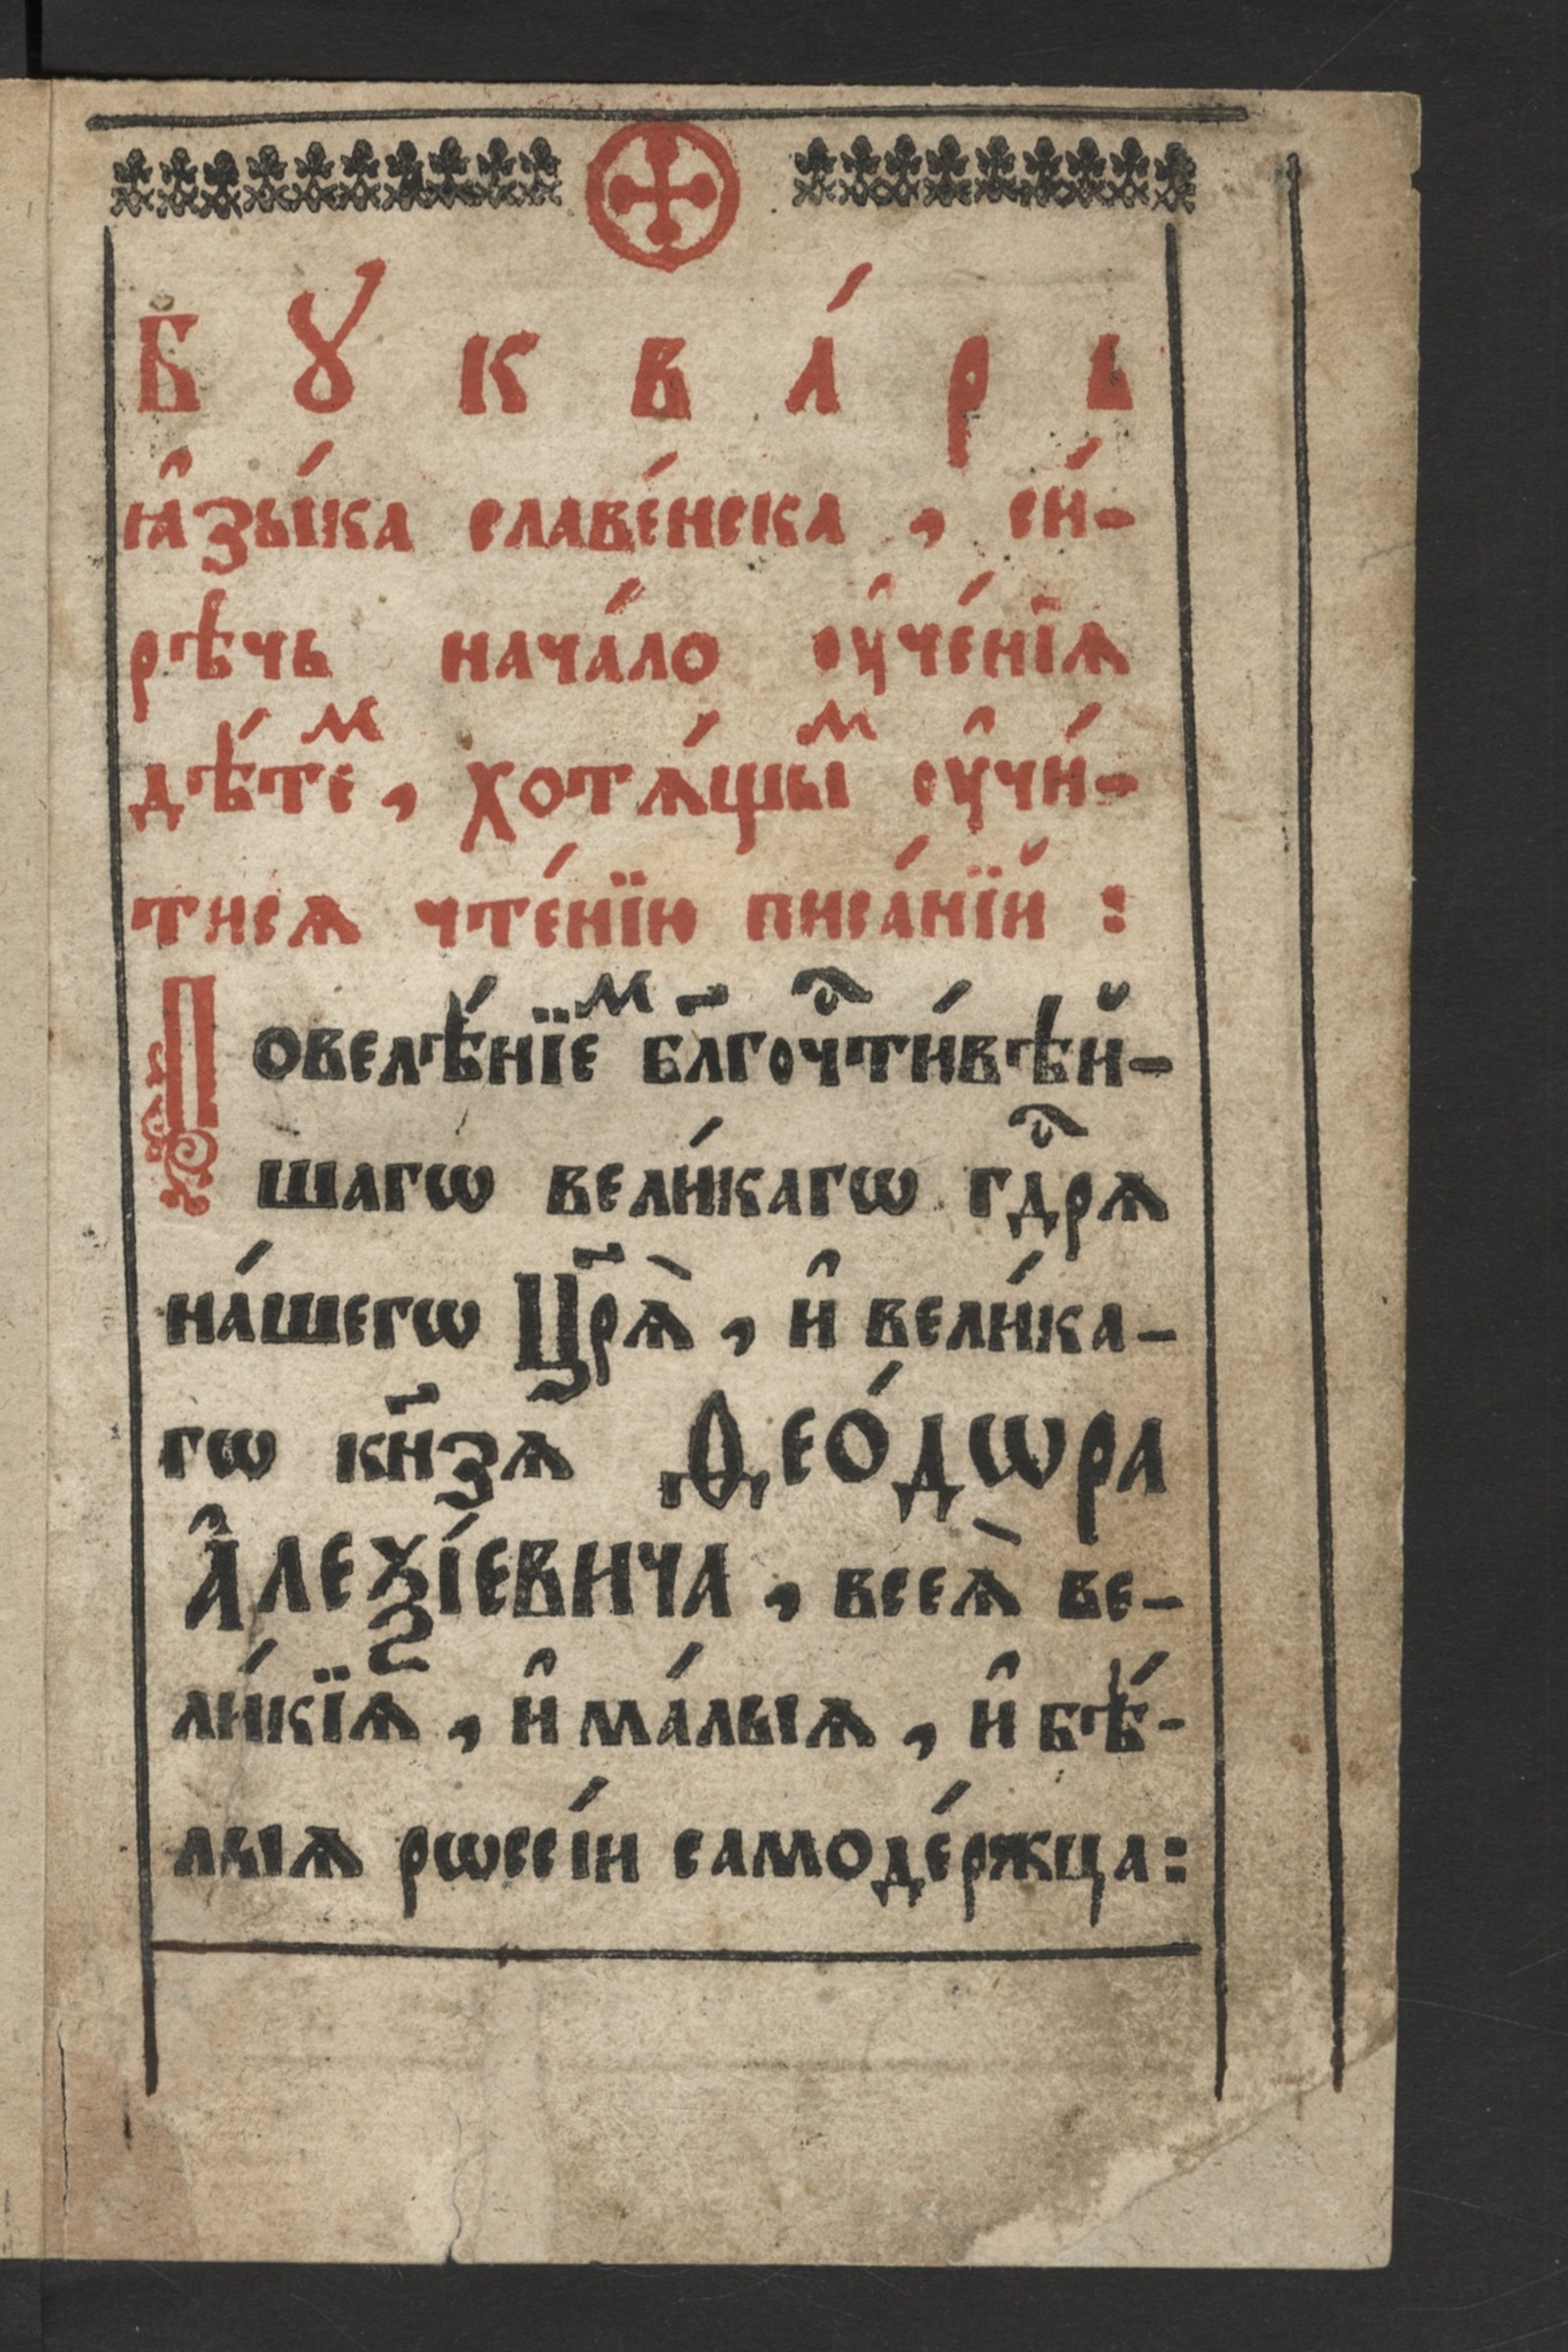 Бꙋква́рь
ꙗ҆зы́ка славе́нска, си́-
рѣчь нача́ло ᲂу҆че́нїѧ
дѣ́теⷨ, хотѧ́щыⷨ ᲂу҆чи́-
тисѧ чте́нїю писа́нїй:
Повелѣ́нїеⷨ бл҃гочⷭ҇ти́вѣй-
шагѡ вели́кагѡ гдⷭ҇рѧ
на́шегѡ Цр҃ѧ̀, и҆ вели́ка-
гѡ кн҃зѧ Ѳео́дѡра
А҆леѯі́евича, всеѧ̀ ве-
ли́кїѧ, и҆ ма́лыѧ, и҆ бѣ́-
лыѧ рѡссі́и самоде́ржца: